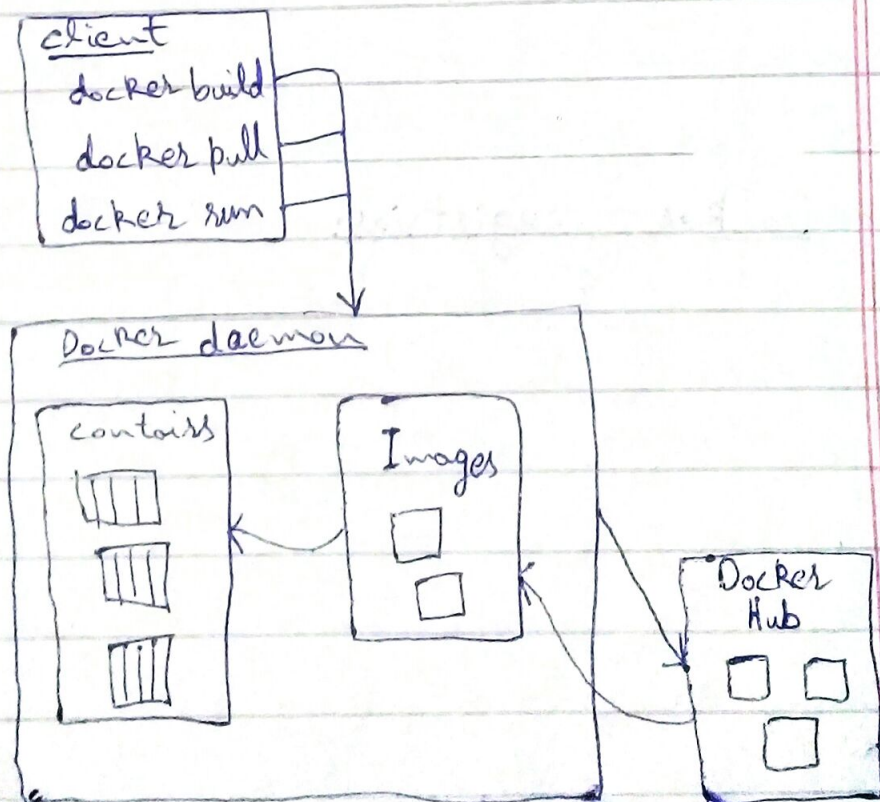 client
docker build
docker pull
docker run
Docker daemon
contairs
Images
Docker
Hub